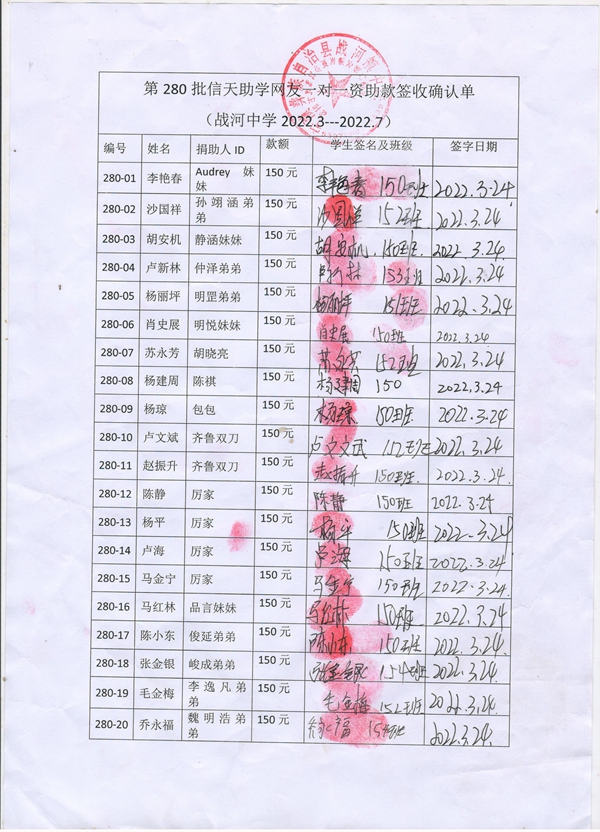 自治县战河
第280批信天助学网友一对一资助款签收确认单
（战河中学2022.3---2022.7）
编号 姓名 捐助人ID 款额 学生签名及班级 签字日期
280-01 李艳春 Audrey 妹妹 150元 李艳春 150班 2022.3.24
280-02 沙国祥 孙翊涵弟弟 150元 沙国祥 152班 2022.3.24
280-03 胡安机 静涵妹妹 150元 胡安机 150班. 2022.3.24
280-04 卢新林 仲泽弟弟 150元 153班 2022.3.24
280-05 杨丽坪 明罡弟弟 150元 杨丽坪 151班 2022.3.24
280-06 肖史展 明悦妹妹 150元 肖史展 150班 2022.3.24
280-07 苏永芳 胡晓亮 150元 苏永芳 152班 2022.3.24
280-08 杨建周 陈祺 150元 杨建周 150 2022.3.24
280-09 杨琼 包包 150元 杨琼 150班 2022.3.24
280-10 卢文斌 齐鲁双刀 150元 卢文 2022.3.24
280-11 赵振升 齐鲁双刀 150元 赵振升 150班. 2022.3.24
280-12 陈静 厉家 150元 陈静 150班 2022.3.24
280-13 杨平 厉家 150元 杨平 150班 2022.3.24
280-14 卢海 厉家 150元 卢海 150班 2022.3.24
280-15 马金宁 厉家 150元 马金宁 150班 2022.3.24
280-16 马红林 品言妹妹 150元 马红林 150班 2022.3.24
280-17 陈小东 俊延弟弟 150元 陈小东 150班 2022.3.24
280-18 张金银 峻成弟弟 150元 张金银 154班 2022.3.24
280-19 毛金梅 李逸凡弟弟 150元 毛金梅 152班 2022.3.24
280-20 乔永福 魏明浩弟弟 150元 乔永福 2022.3.24.